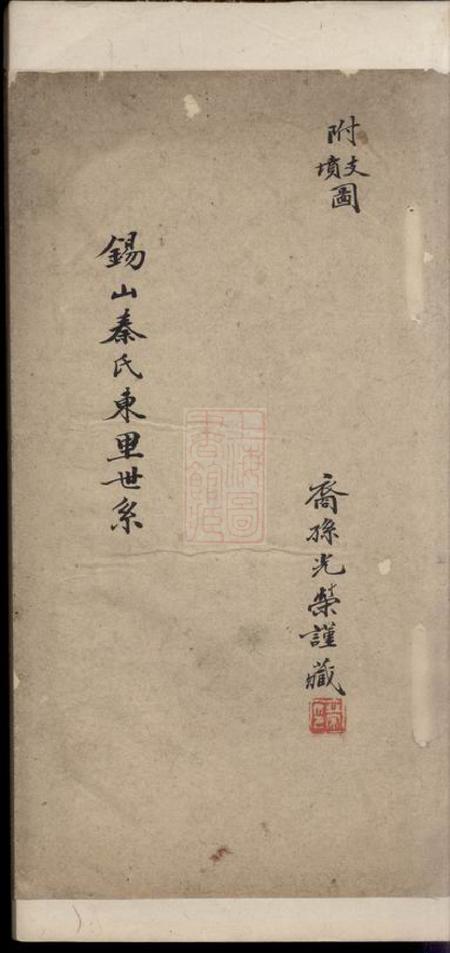 附支
墳圖
裔孫光榮謹藏
錫山秦氏東里世系
上海圖書館藏